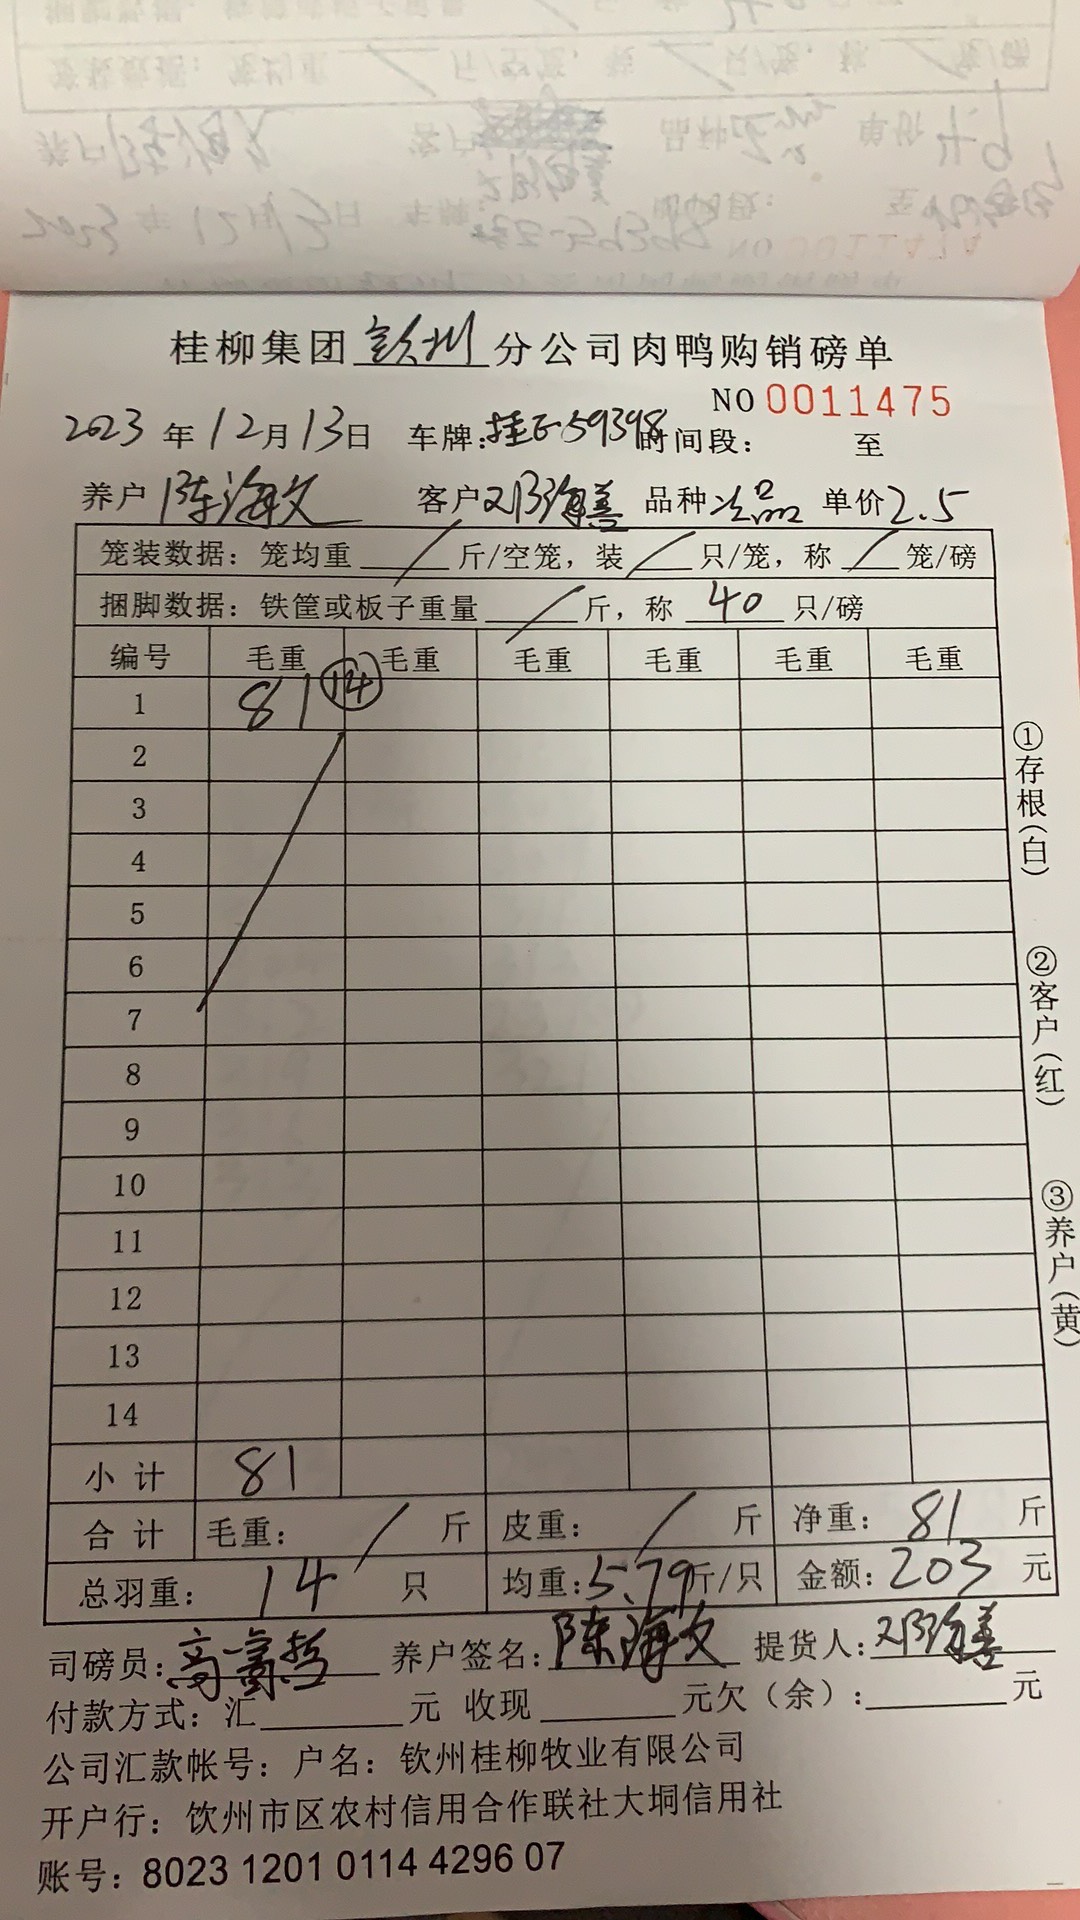 桂柳集团钦州分公司肉鸭购销磅单
NO 0011475
2023年12月13日 车牌:桂E·59398 时间段: 至
养户 陈海文 客户 邓海善 品种 次品 单价 2.5
笼装数据: 笼均重 / 斤/空笼, 装 / 只/笼, 称 / 笼/磅
捆脚数据: 铁筐或板子重量 / 斤, 称 40 只/磅
编号 毛重 毛重 毛重 毛重 毛重 毛重
1 81 14
2
3
4
5
6
7
8
9
10
11
12
13
14
小计 81
合计 毛重: / 斤 皮重: / 斤 净重: 81 斤
总羽重: 14 只 均重: 5.79 斤/只 金额: 203 元
司磅员: 高 养户签名: 陈海文 提货人: 邓海善
付款方式: 汇 元 收现 元欠(余): 元
公司汇款帐号: 户名: 钦州桂柳牧业有限公司
开户行: 钦州市区农村信用合作联社大垌信用社
账号: 8023 1201 0114 4296 07
①存根(白)
②客户(红)
③养户(黄)